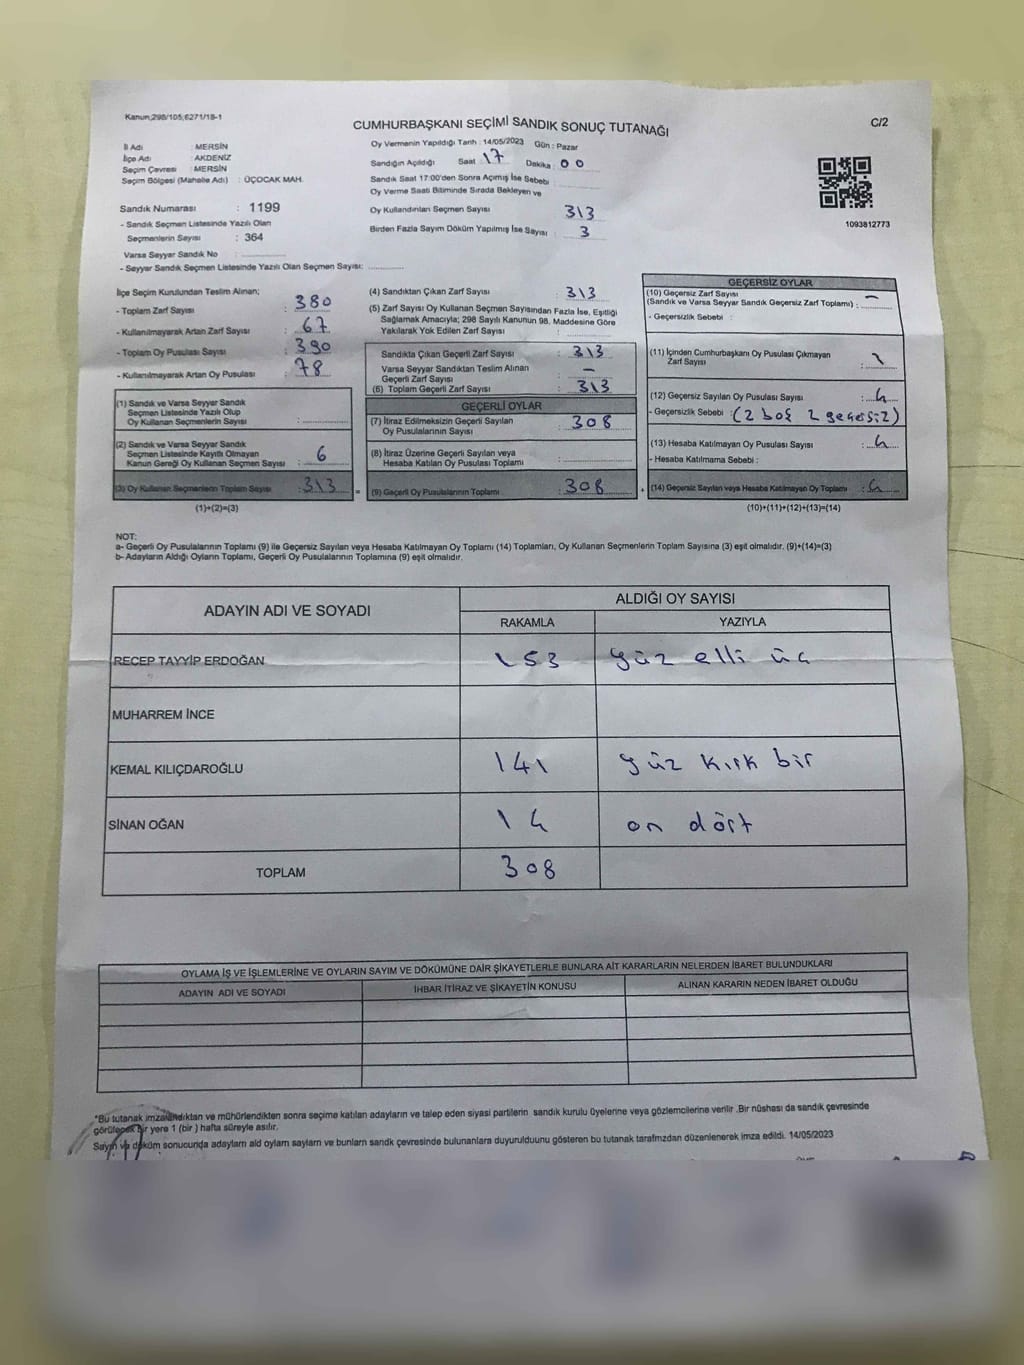 Kanun;298/105;6271/18-1
CUMHURBAŞKANI SEÇİMİ SANDIK SONUÇ TUTANAĞI
C/2
İl Adı : MERSİN
İlçe Adı : AKDENİZ
Seçim Çevresi : MERSİN
Seçim Bölgesi (Mahalle Adı) : ÜÇOCAK MAH.
Sandık Numarası : 1199
- Sandık Seçmen Listesinde Yazılı Olan
Seçmenlerin Sayısı : 364
Varsa Seyyar Sandık No :
- Seyyar Sandık Seçmen Listesinde Yazılı Olan Seçmen Sayısı:
Oy Vermenin Yapıldığı Tarih : 14/05/2023 Gün : Pazar
Sandığın Açıldığı Saat 17 Dakika : 00
Sandık Saat 17:00'den Sonra Açımış İse Sebebi :
Oy Verme Saati Bitiminde Sırada Bekleyen ve
Oy Kullandırılan Seçmen Sayısı 313
Birden Fazla Sayım Döküm Yapılmış İse Sayısı : 3
1093812773
İlçe Seçim Kurulundan Teslim Alınan;
- Toplam Zarf Sayısı : 380
- Kullanılmayarak Artan Zarf Sayısı : 67
- Toplam Oy Pusulası Sayısı : 390
- Kullanılmayarak Artan Oy Pusulası : 78
(1) Sandık ve Varsa Seyyar Sandık
Seçmen Listesinde Yazılı Olup
Oy Kullanan Seçmenlerin Sayısı :
(2) Sandık ve Varsa Seyyar Sandık
Seçmen Listesinde Kayıtlı Olmayan
Kanun Gereği Oy Kullanan Seçmen Sayısı : 6
(3) Oy Kullanan Seçmenlerin Toplam Sayısı : 313
(1)+(2)=(3)
(4) Sandıktan Çıkan Zarf Sayısı : 313
(5) Zarf Sayısı Oy Kullanan Seçmen Sayısından Fazla İse, Eşitliği
Sağlamak Amacıyla; 298 Sayılı Kanunun 98. Maddesine Göre
Yakılarak Yok Edilen Zarf Sayısı :
Sandıkta Çıkan Geçerli Zarf Sayısı : 313
Varsa Seyyar Sandıktan Teslim Alınan
Geçerli Zarf Sayısı : –
(6) Toplam Geçerli Zarf Sayısı : 313
GEÇERLİ OYLAR
(7) İtiraz Edilmeksizin Geçerli Sayılan
Oy Pusulalarının Sayısı : 308
(8) İtiraz Üzerine Geçerli Sayılan veya
Hesaba Katılan Oy Pusulası Toplamı :
= (9) Geçerli Oy Pusulalarının Toplamı : 308
GEÇERSİZ OYLAR
(10) Geçersiz Zarf Sayısı
(Sandık ve Varsa Seyyar Sandık Geçersiz Zarf Toplamı) : –
- Geçersizlik Sebebi :
(11) İçinden Cumhurbaşkanı Oy Pusulası Çıkmayan
Zarf Sayısı : 1
(12) Geçersiz Sayılan Oy Pusulası Sayısı : 4
- Geçersizlik Sebebi : (2 boş 2 geçersiz)
(13) Hesaba Katılmayan Oy Pusulası Sayısı : 4
- Hesaba Katılmama Sebebi :
+ (14) Geçersiz Sayılan veya Hesaba Katılmayan Oy Toplamı : 4
(10)+(11)+(12)+(13)=(14)
NOT:
a- Geçerli Oy Pusulalarının Toplamı (9) ile Geçersiz Sayılan veya Hesaba Katılmayan Oy Toplamı (14) Toplamları, Oy Kullanan Seçmenlerin Toplam Sayısına (3) eşit olmalıdır. (9)+(14)=(3)
b- Adayların Aldığı Oyların Toplamı, Geçerli Oy Pusulalarının Toplamına (9) eşit olmalıdır.
ADAYIN ADI VE SOYADI
ALDIĞI OY SAYISI
RAKAMLA YAZIYLA
RECEP TAYYİP ERDOĞAN 153 yüz elli üç
MUHARREM İNCE
KEMAL KILIÇDAROĞLU 141 yüz kırk bir
SİNAN OĞAN 14 on dört
TOPLAM 308
OYLAMA İŞ VE İŞLEMLERİNE VE OYLARIN SAYIM VE DÖKÜMÜNE DAİR ŞİKAYETLERLE BUNLARA AİT KARARLARIN NELERDEN İBARET BULUNDUKLARI
ADAYIN ADI VE SOYADI İHBAR İTİRAZ VE ŞİKAYETİN KONUSU ALINAN KARARIN NEDEN İBARET OLDUĞU
*Bu tutanak imzalandıktan ve mühürlendikten sonra seçime katılan adayların ve talep eden siyasi partilerin sandık kurulu üyelerine veya gözlemcilerine verilir .Bir nüshası da sandık çevresinde
görülecek bir yere 1 (bir ) hafta süreyle asılır.
Sayım ve döküm sonucunda adayların ald oyların sayların ve bunların sandk çevresinde bulunanlara duyurulduunu gösteren bu tutanak tarafmzdan düzenlenerek imza edildi. 14/05/2023